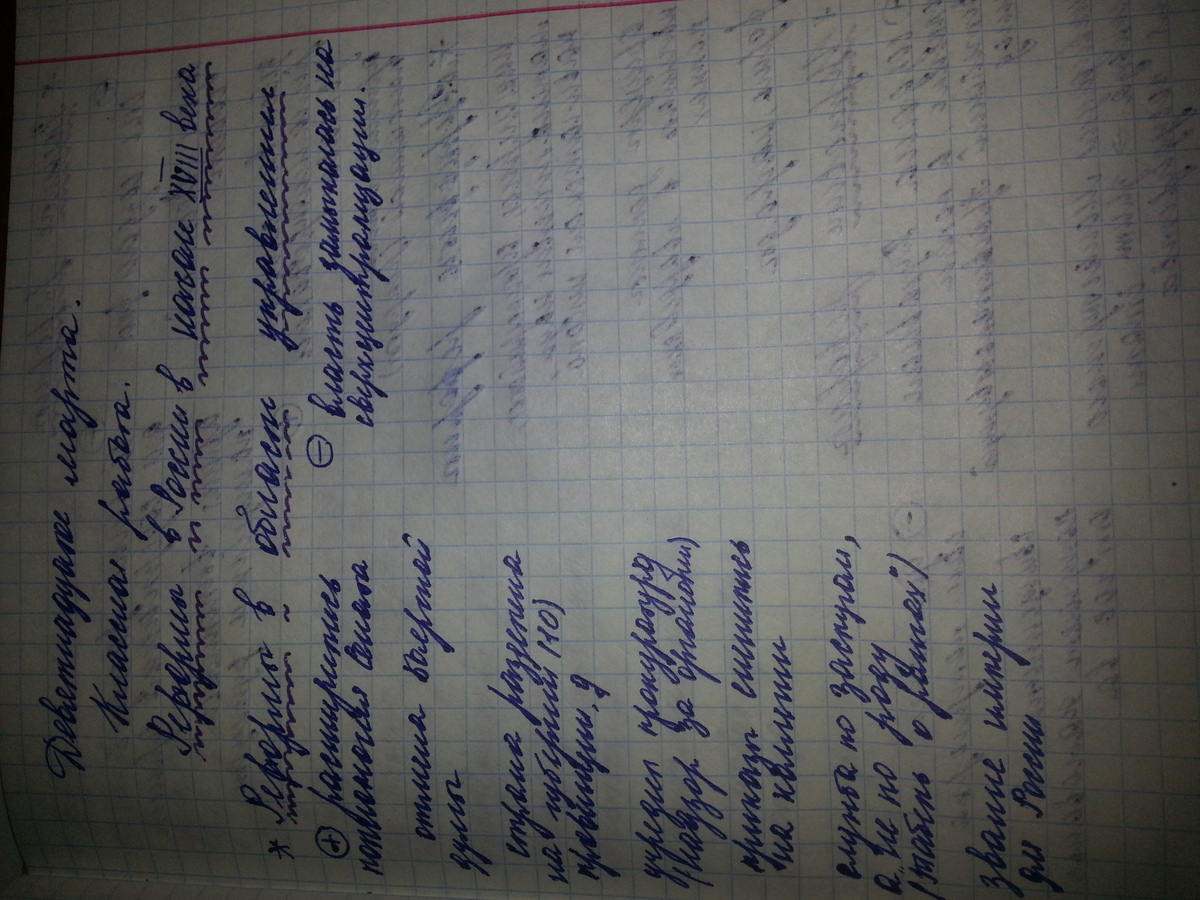 Девятнадцатое марта.
Классная работа.
Реформы в России в начале XVIII века
* Реформы в области управления
⊕ расширились
полномочия Сената
отмена Боярской
думы
страна разделена
на губернии (10)
провинции,
учредил прокуратуру
(надзор за органами)
приказы сменились
на коллегии
служба по заслугам,
а не по роду
(табель о рангах")
звание империи
для России
⊖ власть замыкалась на
сверхцентрализации.